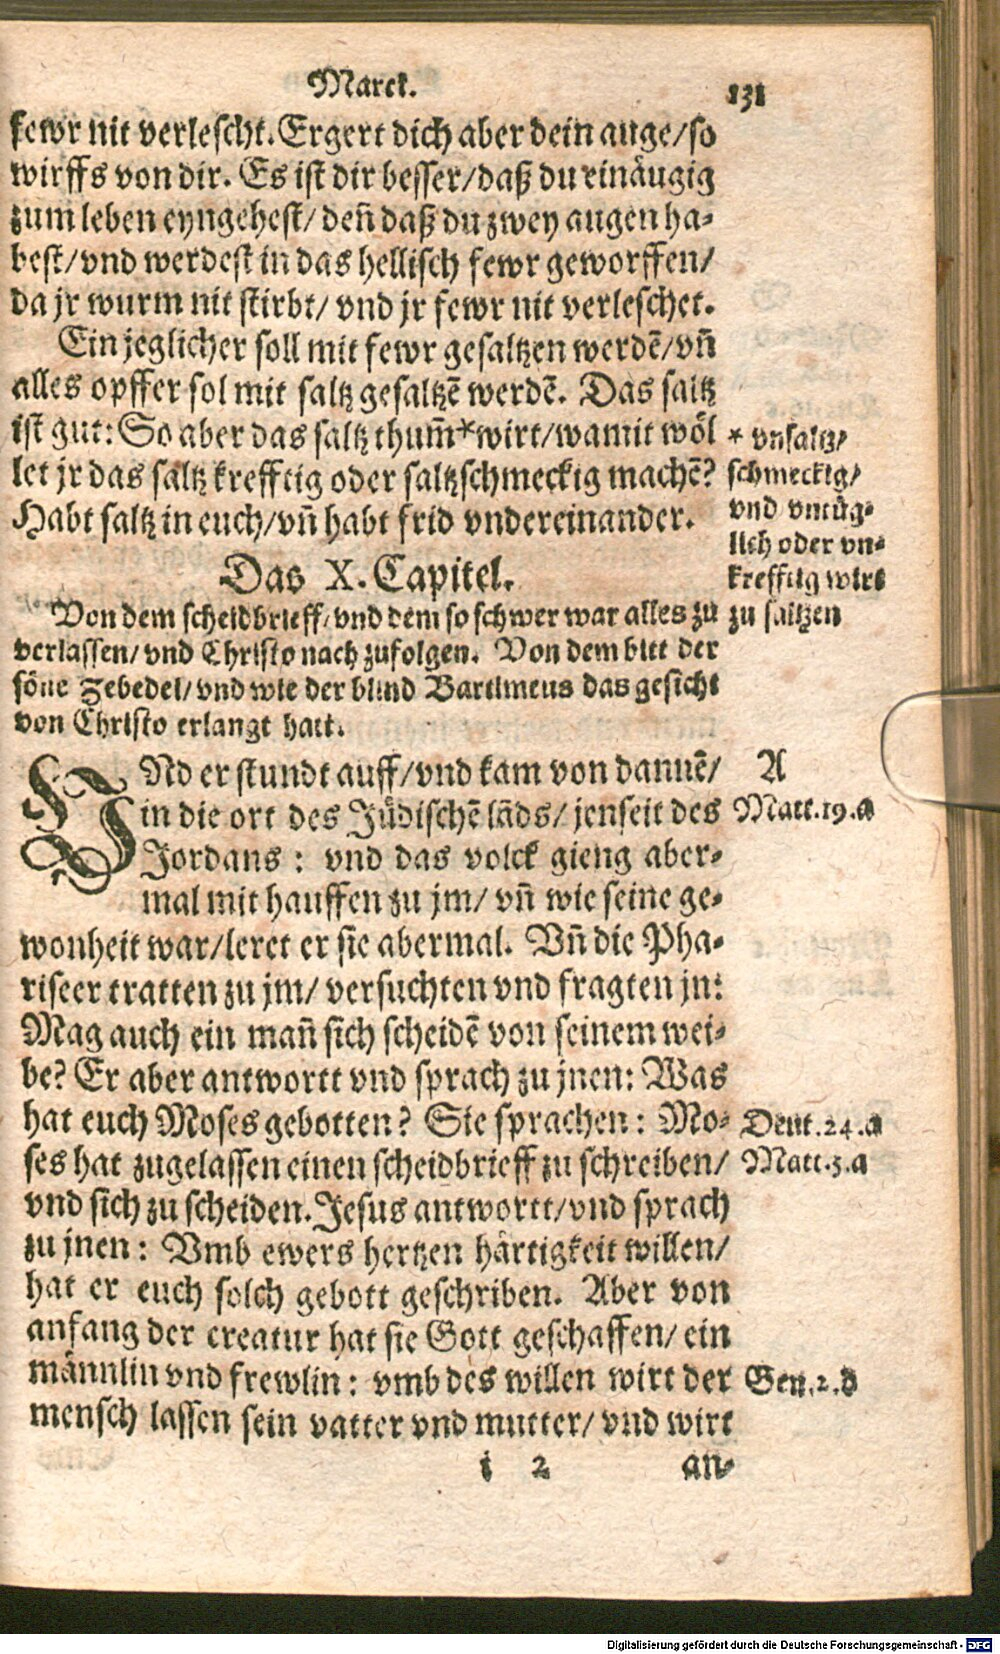 Marck. 131
fewr nit verlescht. Ergert dich aber dein auge/so
wirffs von dir. Es ist dir besser/daß du einäugig
zum leben eyngehest/ deñ daß du zwey augen ha-
best/vnd werdest in das hellisch fewr geworffen/
da jr wurm nit stirbt/ vnd jr fewr nit verleschet.
Ein jeglicher soll mit fewr gesaltzen werdē/vñ
alles opffer sol mit saltz gesaltzē werdē. Das saltz
ist gut: So aber das saltz thum̃*wirt/wamit wöl
let jr das saltz krefftig oder saltzschmeckig machē?
Habt saltz in euch/vñ habt frid vndereinander.
* vnsaltz/
schmeckig/
vnd vntüg-
lich oder vn-
krefftig wirt
zu saltzen
Das X. Capitel.
Von dem scheidbrieff/vnd dem so schwer war alles zu
verlassen/vnd Christo nach zufolgen. Von dem bitt der
söne Zebedei/vnd wie der blind Bartimeus das gesicht
von Christo erlangt hatt.
VNd er stundt auff/vnd kam von dannē/
in die ort des Jüdischē lāds/ jenseit des
Jordans: vnd das volck gieng aber-
mal mit hauffen zu jm/ vñ wie seine ge-
wonheit war/leret er sie abermal. Vñ die Pha-
riseer tratten zu jm/ versuchten vnd fragten jn:
Mag auch ein mañ sich scheidē von seinem wei-
be? Er aber antwortt vnd sprach zu jnen: Was
hat euch Moses gebotten? Sie sprachen: Mo-
ses hat zugelassen einen scheidbrieff zu schreiben/
vnd sich zu scheiden. Jesus antwortt/vnd sprach
zu jnen: Vmb ewers hertzen härtigkeit willen/
hat er euch solch gebott geschriben. Aber von
anfang der creatur hat sie Gott geschaffen/ ein
männlin vnd frewlin: vmb des willen wirt der
mensch lassen sein vatter vnd mutter/ vnd wirt
A
Matt.19.a
Deut.24.a
Matt.5.a
Gen.2.d
i 2 an-
Digitalisierung gefördert durch die Deutsche Forschungsgemeinschaft - DFG